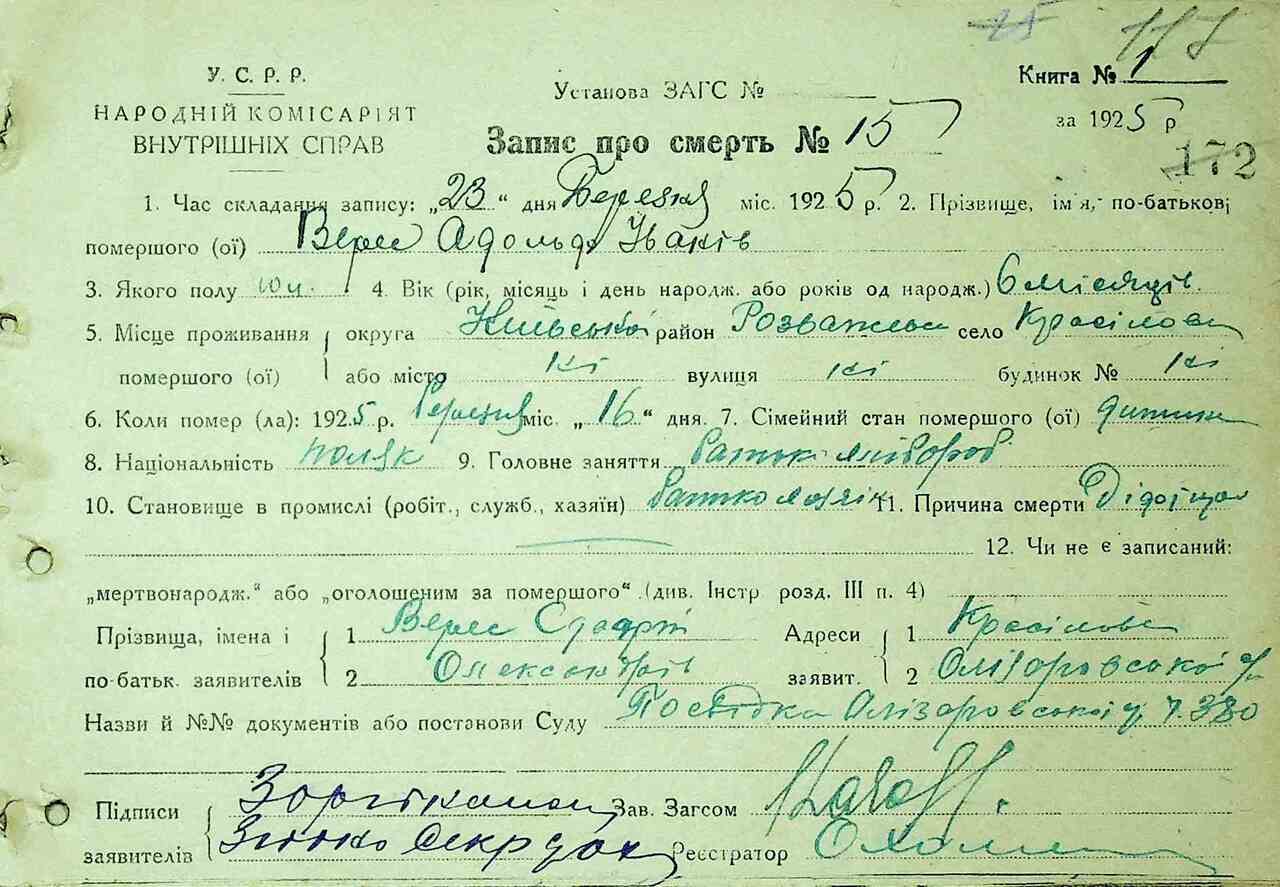 117
У. С. Р. Р.
НАРОДНІЙ КОМІСАРІЯТ
ВНУТРІШНІХ СПРАВ
Установа ЗАГС №
Книга № 1
за 1925 р
Запис про смерть № 15
172
1. Час складання запису: „23“ дня Березня міс. 1925 р. 2. Прізвище, ім'я, по-батькові
помершого (ої) Верес Адольф Іванів
3. Якого полу 4. Вік (рік, місяць і день народж. або років од народж.) 6 місяців
5. Місце проживання округа Київської район Розважев село Красілов
помершого (ої) або місто вулиця будинок №
6. Коли помер (ла): 1925 р. Березня міс. „16“ дня. 7. Сімейний стан помершого (ої) дитина
8. Національність поляк 9. Головне заняття батькі хлібороб
10. Становище в промислі (робіт., служб., хазяїн) батько хазяїн 11. Причина смерти
12. Чи не є записаний:
„мертвонародж.“ або „оголошеним за помершого“ (див. Інстр розд. III п. 4)
Прізвища, імена і 1 Верес Адреси 1 Красілов
по-батьк. заявителів 2 заявит. 2 Олізаровської
Назви й №№ документів або постанови Суду Посвідка Олізаровської 380
Підписи Зав. Загсом
заявителів Реєстратор